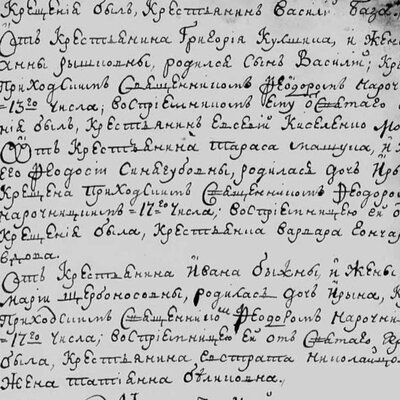 Крещенїя былъ, Крестьянинъ Василїй База
Отъ Крестьянина Григорїя Кулшина, и Жены
Анны рышповны, родился Сынъ Василїи; Кре
приходскимъ Священникомъ Ѳеодоромъ Нароч
=13го числа; воспрїемникомъ ему о Святаго
нїя былъ, Крестьянинъ Евсевїй Киселенко
Отъ Крестьянина Тараса и
его Ѳеодосїи Синегубовны, родилась дочь Иры
Крещена приходскимъ Священникомъ Ѳеодоро
нарочницкимъ =17го числа; воспрїемницею ей о
Крещенїя была, Крестьянка Варвара Гонча
вдова.
Отъ Крестьянина Ивана быжны, и Жены
Марїи щербоносовны, родилась дочь Ирына, К
приходскимъ Священникомъ Ѳеодоромъ Нарочни
=17го числа; воспрїемницею ей отъ Святаго Кре
была, Крестьянина Евстрата Николайц
Жена татїанна бѣликовна.